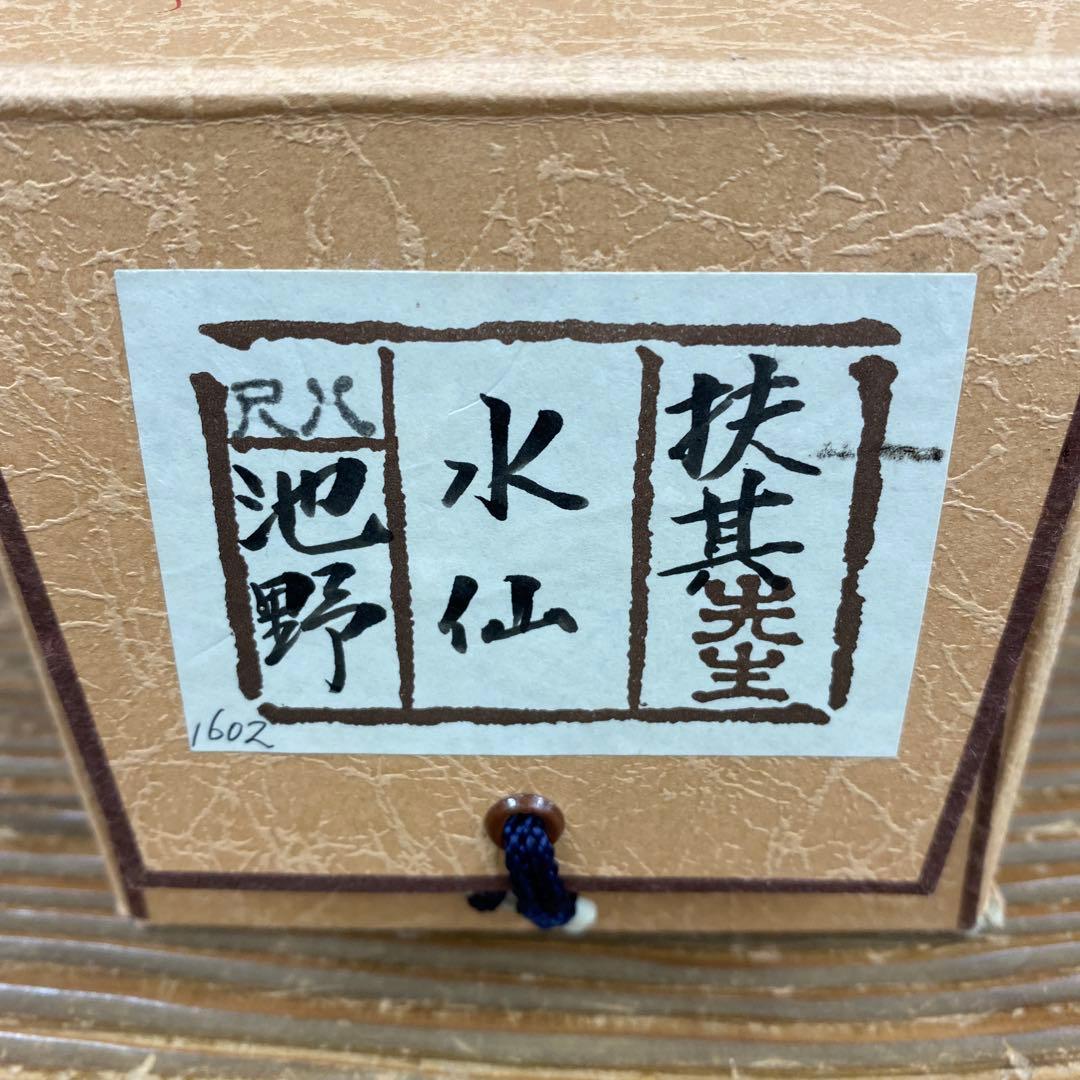 扶其先生
水仙
尺八
池野
1602